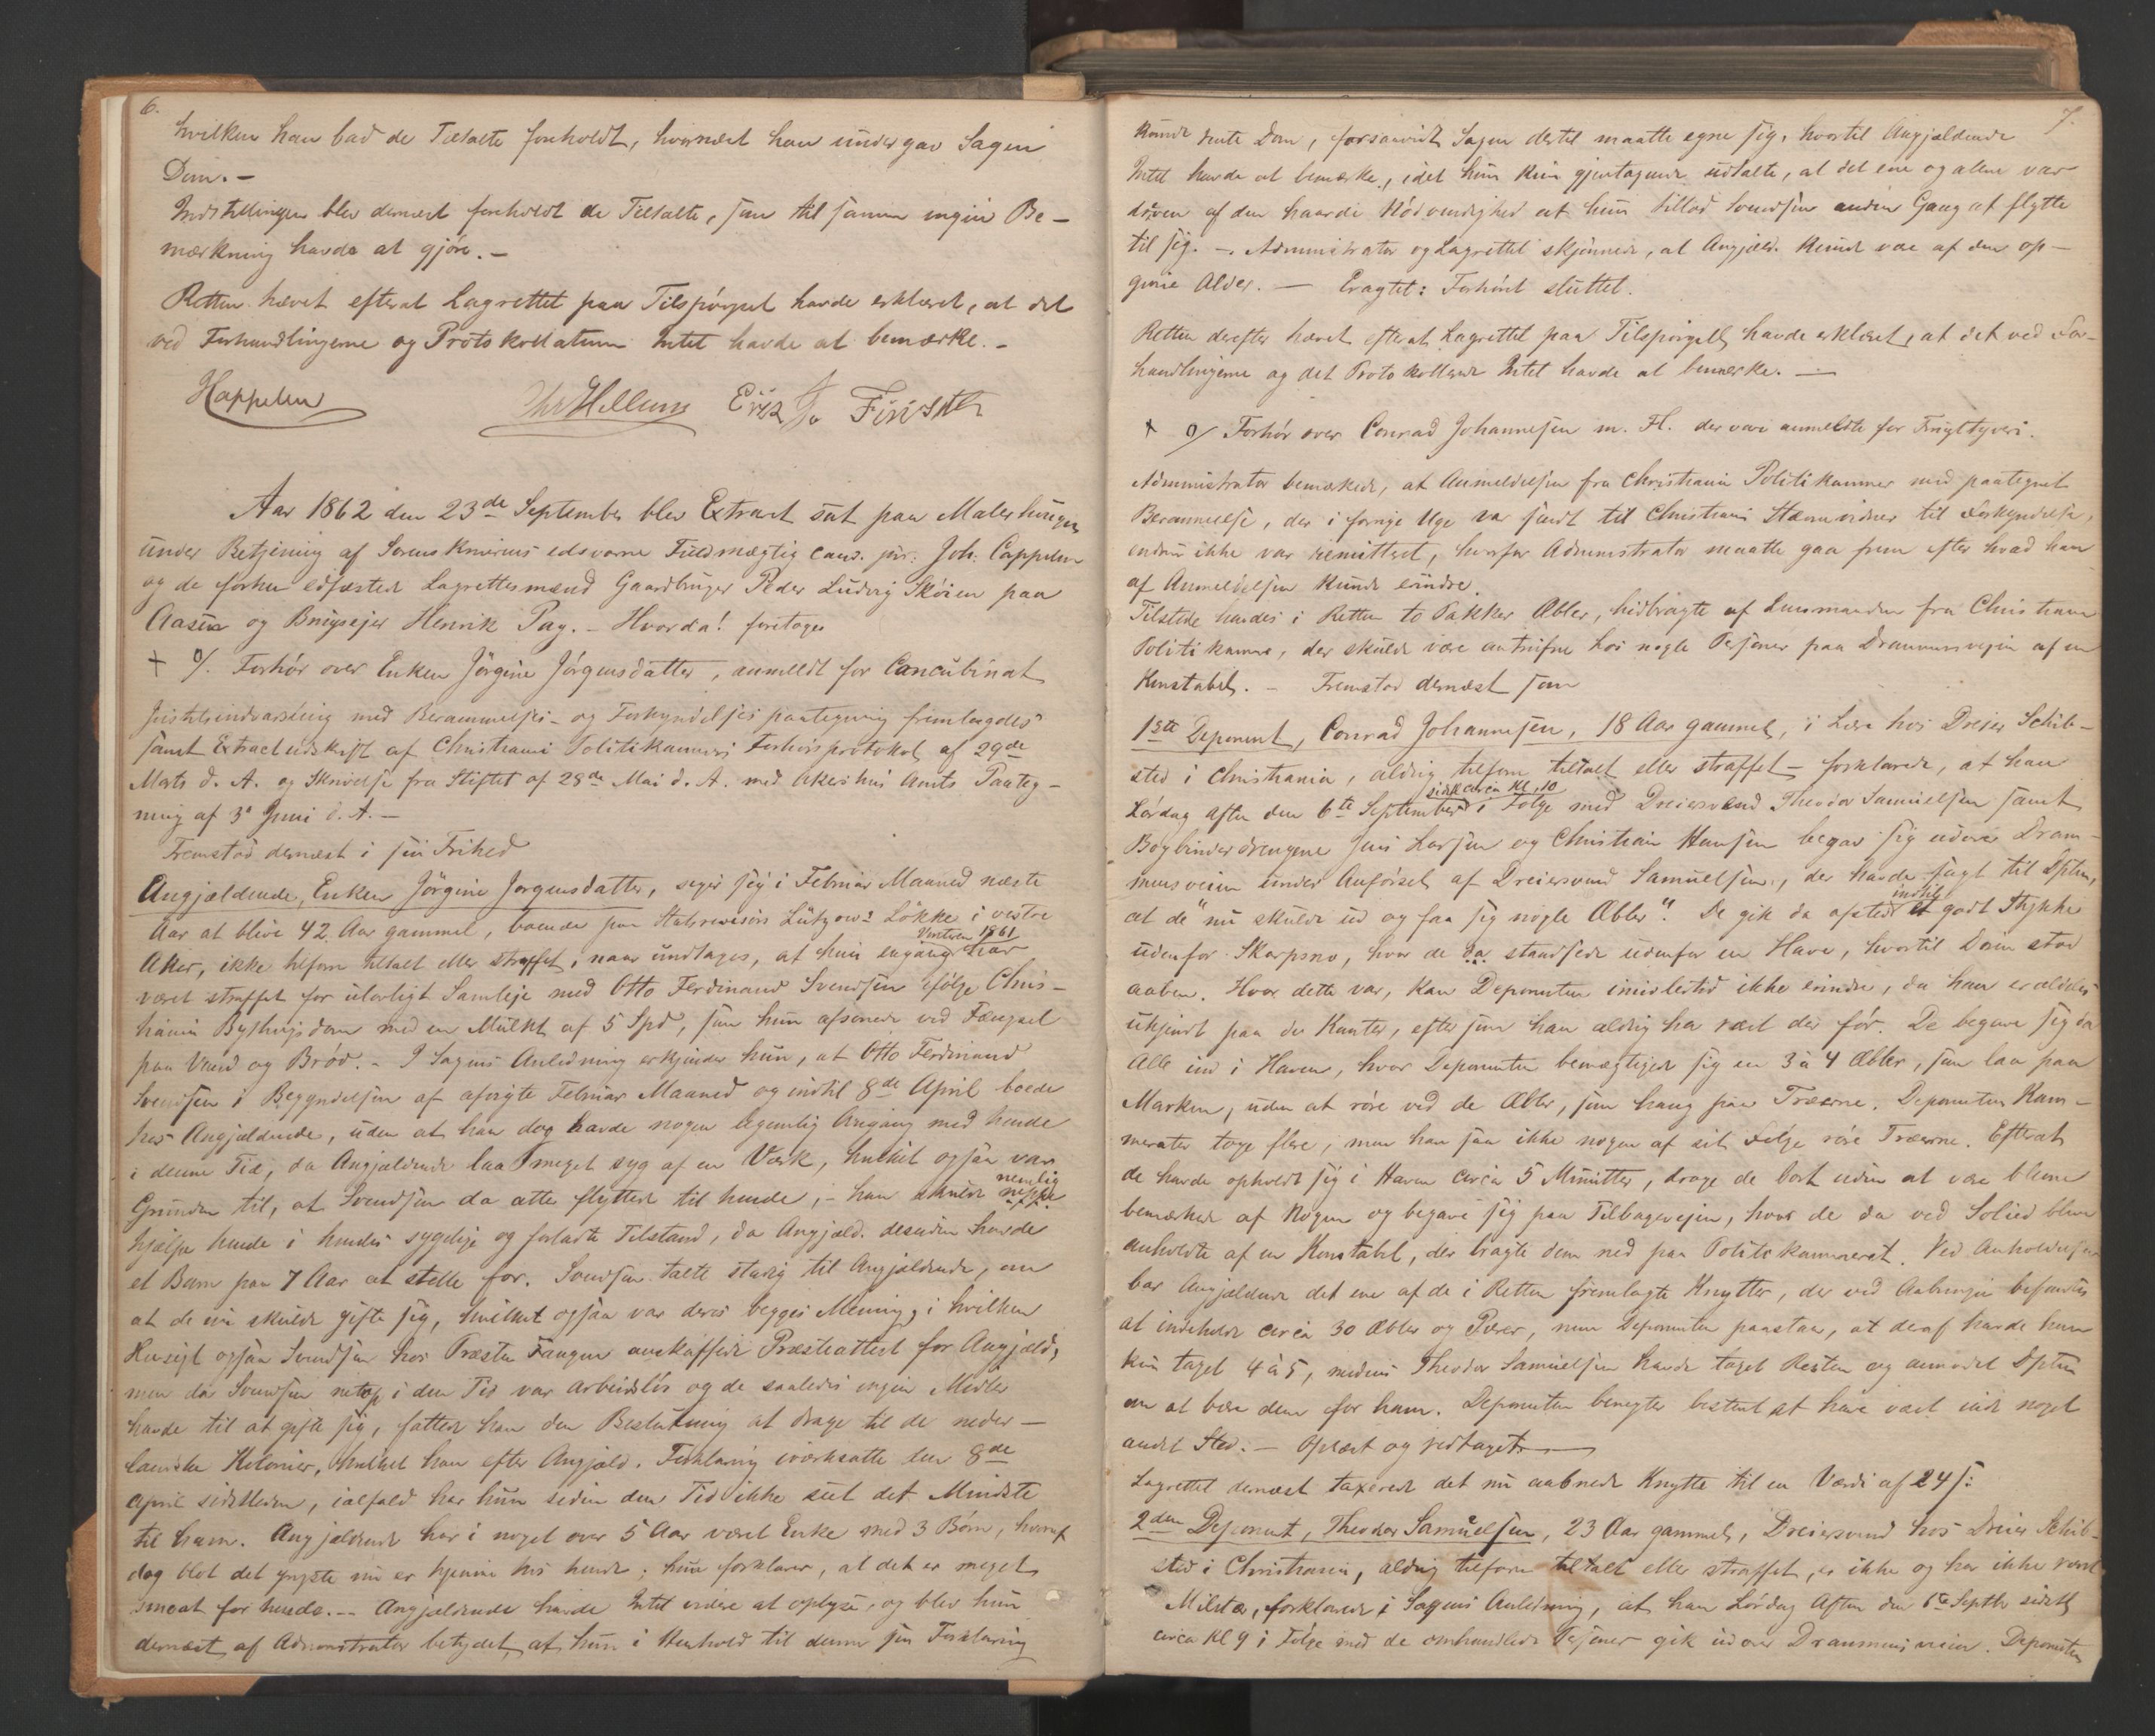 6.
hvilken han bad de Tiltalte forholdt, hvornæst han undergav Sagen
Dom. -
Indstillingen blev dernæst foreholdt de Tiltalte, som til samme ingen Be-
mærkning havde at gjöre. -
Retten hævet efterat Lagrettet paa Tilspörgsel havde erklæret, at det
ved Forhandlingerne og Protokollatum Intet havde at bemærke. -
Happelen Chr Hellum Erik
Aar 1862 den 23de September blev Extraret sat paa
under Betjening af Sorenskriverens edsvorne Fuldmægtig cand. jur. Joh. Cappelen
og de forhen edfæstede Lagrettesmænd Gaardbruger Peder Ludvig Sköien paa
Aasen og Brugseier Henrik Pay. - Hvorda! foretoges
+ %. Forhör over Enken Jörgine Jörgensdatter, anmeldt for Concubinat
med Berammelses- og Forkyndelses paategning fremlagdes
samt Extractudskrift af Christiania Politikammers Forhörsprotokol af 29de
Marts d. A. og Skrivelse fra Stiftet af 28de Mai d. A. med Akershus Amts Paateg-
ning af 3. Juni d. A. -
Fremstod dernæst i sin Frihed
Angjældende, Enken Jörgine Jorgensdatter, siger sig i Februar Maaned næste
Aar at blive 42 Aar gammel, boende paa Statsrevisor Lützows Lökke i vestre
Aker, ikke tilforn tiltalt eller straffet, naar undtages, at hun engang Vinteren 1861 har
været straffet for ulovligt Samleje med Otto Ferdinand Svendsen ifölge Chris-
tiania Bythings dom med en Mulkt af 5 Spd, som hun afsonede ved Fængsel
paa Vand og Bröd. - I Sagens Anledning erkjender hun, at Otto Ferdinand
Svendsen i Begyndelsen af afvigte Februar Maaned og indtil 8de April boede
hos Angjældende, uden at han dog havde nogen legemlig Omgang med hende
i denne Tid, da Angjældende laa meget syg af en Værk, hvilket ogsaa var
Grunden til, at Svendsen da atter flyttede til hende, - han skulde nemlig
hjælpe hende i hendes sygelige og forladte Tilstand, da Angjæld. desuden havde
et Barn paa 7 Aar at stelle for. Svendsen talte stadig til Angjældende, om
at de nu skulde gifte sig, hvilket ogsaa var deres begges Mening, i hvilken
Hensigt ogsaa Svendsen hos Præsten Fangen anskaffede Præsteattest for Angjæld,
men da Svendsen netop i den Tid var arbeidslös og de saaledes ingen Midler
havde til at gifte sig, fattede han den Beslutning at drage til de neder-
landske Kolonier, hvilket han efter Angjæld. Forklaring iværksatte den 8de
April sidstleden, ialfald har hun siden den Tid ikke seet det Mindste
til ham. Angjældende har i noget over 5 Aar været Enke med 3 Börn, hvoraf
dog blot det yngste nu er hjemme hos hende; hun forklarer, at det er meget
smaat for hende. - Angjældende havde Intet videre at oplyse, og blev hun
dernæst af Administrator betydet, at hun i Henhold til denne sin Forklaring
7.
kunde vente Dom, forsaavidt Sagen dertil maatte egne sig, hvortil Angjældende
Intet havde at bemærke, idet hun kun gjentagende udtalte, at det ene og alene var
dreven af den haarde Nödvendighed at hun tillod Svendsen anden Gang at flytte
til sig. -. Administrator og Lagrettet skjönnede, at Angjæld. kunde være af den op-
givne Alder. - Eragtet: Forhöret sluttet.
Retten derefter hævet efterat Lagrettet paa Tilspörgsel havde erklæret, at det ved For-
handlingerne og det Protokollerede Intet havde at bemærke. -
+ %. Forhör over Conrad Johannesen m. Fl. der vare anmeldte for Frugttyveri.
Administrator bemærkede, at Anmeldelsen fra Christiania Politikammer med paategnet
Berammelse, der i forrige Uge var sendt til Christiania Stævnevidner til Forkyndelse,
endnu ikke var remitteret, hvorfor Administrator maatte gaa frem efter hvad han
af Anmeldelsen kunde erindre.
Tilstede havdes i Retten to Pakker Æbler, hidbragte af Lensmanden fra Christiania
Politikammer, der skulde være antrufne hos nogle Personer paa Drammensvejen af en
Konstabel. - Fremstod dernæst som
1ste Deponent, Conrad Johannesen, 18 Aar gammel, i Lære hos Dreier Schib-
sted i Christiania, aldrig tilforn tiltalt eller straffet - forklarede, at han
Lördag Aften den 6te September sidstl. circa Kl. 10 i Fölge med Dreiersvend Theodor Samuelsen samt
Bogbinderdrengene Jens Larsen og Christian Hansen begav sig udover Dram-
mensveien under Anförsel af Dreiersvend Samuelsen, der havde sagt til Dptn,
at de "nu skulde ud og faa sig nogle Æbler". De gik da afsted indtil et godt Stykke
udenfor Skarpsno, hvor de da standsede udenfor en Have, hvortil Dören stod
aaben. Hvor dette var, kan Deponenten imidlertid ikke erindre, da han er aldeles
ukjendt paa de Kanter, eftersom han aldrig har vært der för. De begave sig da
Alle ind i Haven, hvor Deponenten bemægtigede sig en 3 à 4 Æbler, som laa paa
Marken, uden at röre ved de Æbler, som hang paa Træerne. Deponentens Kam-
merater toge flere, men han saa ikke nogen af sit Fölge röre Træerne. Efterat
de havde opholdt sig i Haven circa 5 Minutter, droge de bort uden at være blevne
bemærkede af Nogen og begave sig paa Tilbageveien, hvor de da ved Solied bleve
anholdte af en Konstabel, der bragte dem ned paa Politikammeret. Ved Anholdelsen
bar Angjældende det ene af de i Retten fremlagte Knytter, der ved Aabningen befandtes
at indeholde circa 30 Æbler og Pærer, men Deponenten paastaar, at deraf havde han
kun taget 4 à 5, medens Theodor Samuelsen havde taget Resten og anmodet Dptn
om at bære dem for ham. Deponenten benegter bestemt at have vært inde noget
andet Sted. - Oplæst og vedtaget. -
Lagrettet dernæst taxerede det nu aabnede Knytte til en Værdi af 24 s:
2den Deponent, Theodor Samuelsen, 23 Aar gammel, Dreiersvend hos Dreier Schib-
sted i Christiania, aldrig tilforn tiltalt eller straffet, er ikke og har ikke vært
Militær, forklarede i Sagens Anledning, at han Lördag Aften den 6te Septbr sidstl
circa Kl 9 i Fölge med de omhandlede Personer gik udover Drammensveien. Deponenten